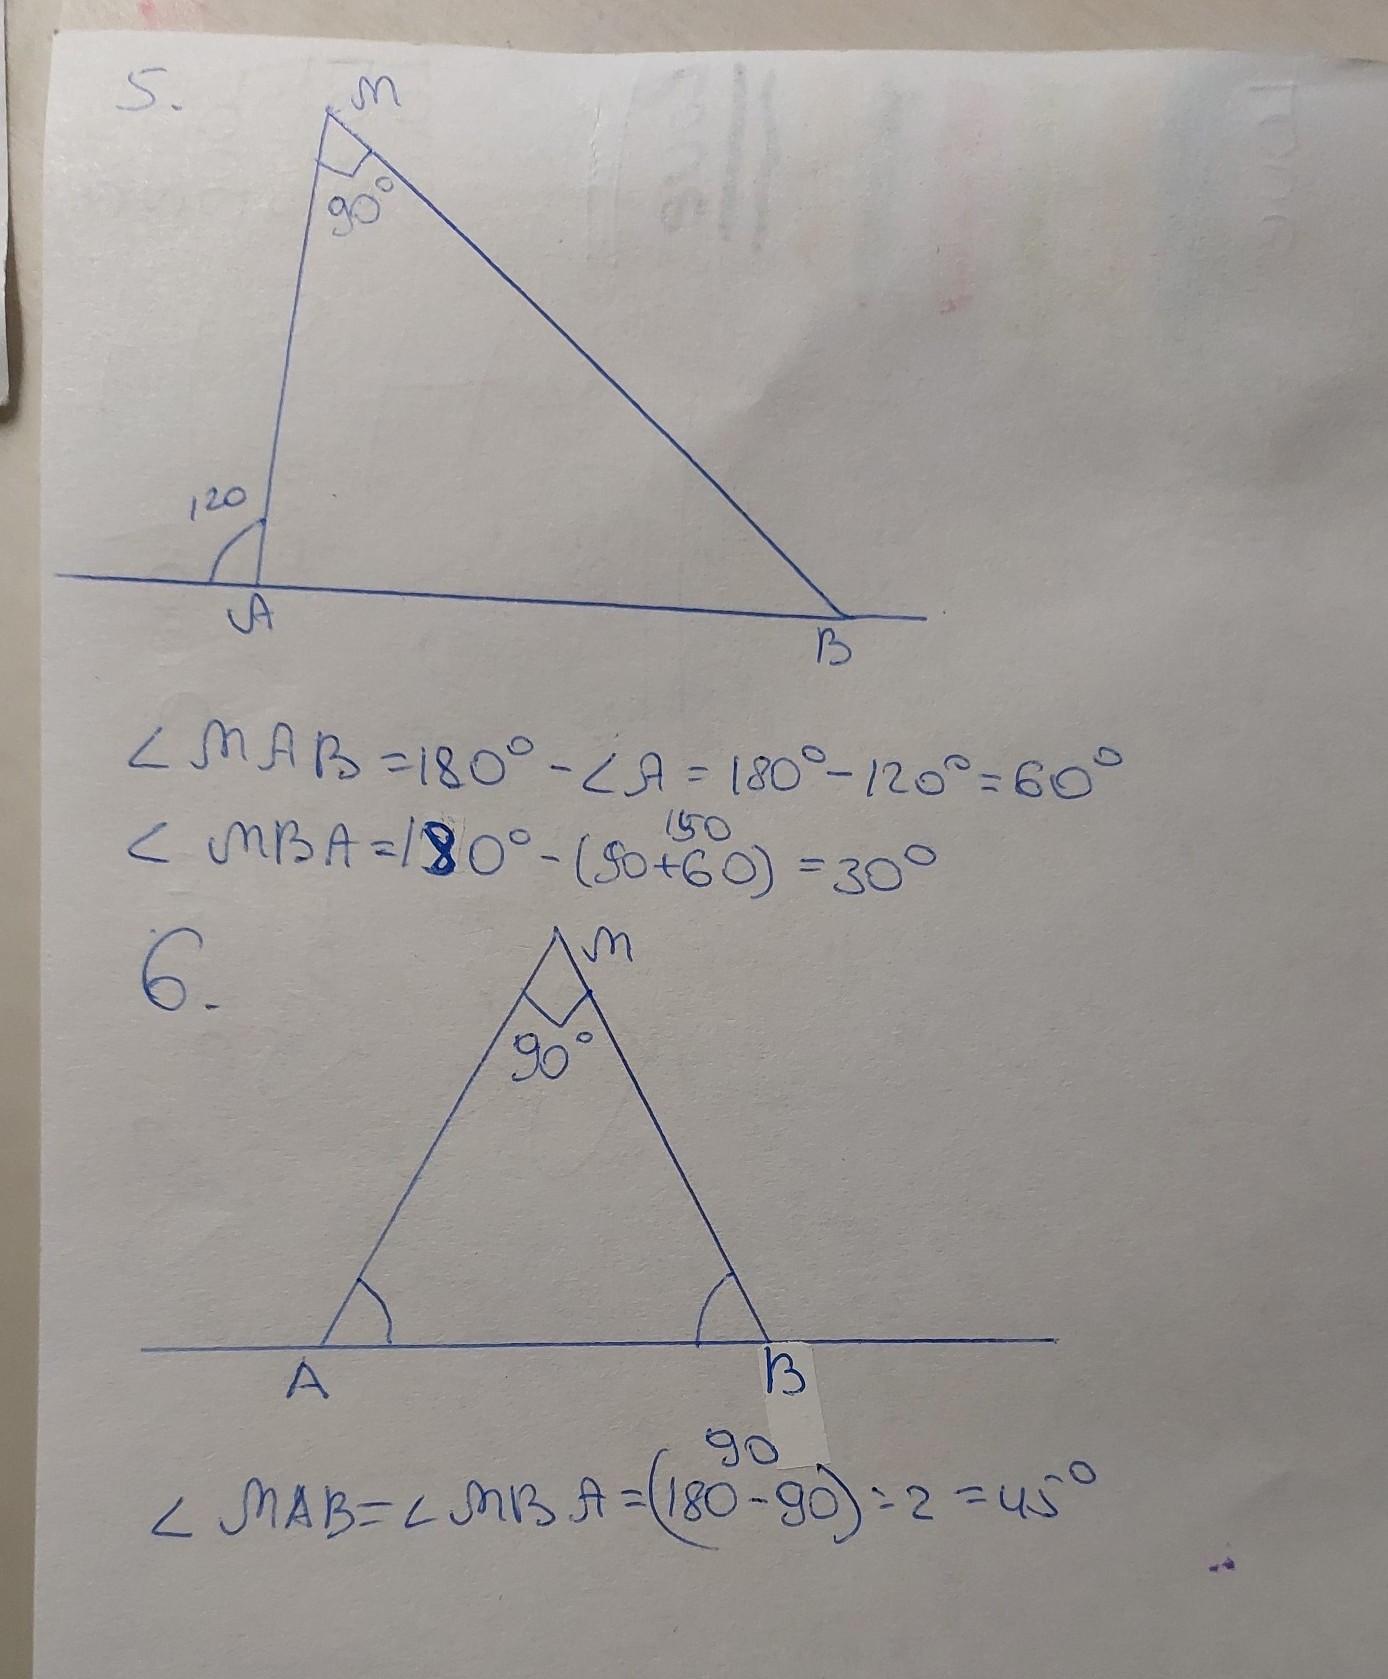 5.
M
90°
120
A
B
∠ MAB = 180° - ∠A = 180° - 120° = 60°
150
∠ MBA = 180° - (90+60) = 30°
6.
M
90°
A
B
90
∠ MAB = ∠ MBA = (180-90) : 2 = 45°